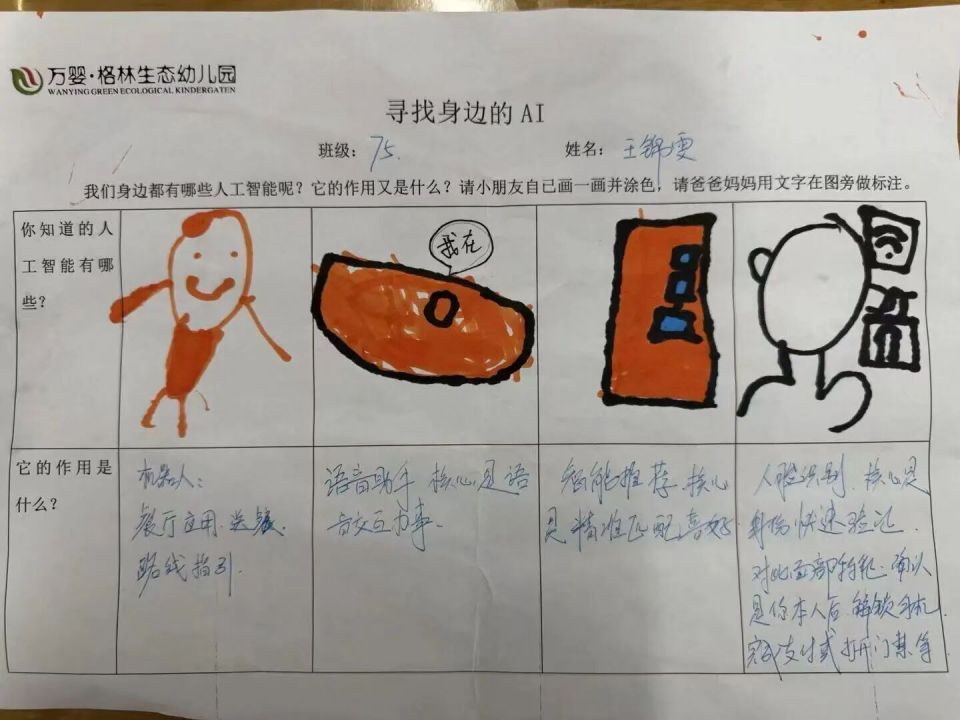 万婴·格林生态幼儿园
WANYING GREEN ECOLOGICAL KINDERGATEN
寻找身边的 AI
班级: 75. 姓名: 王锦雯
我们身边都有哪些人工智能呢?它的作用又是什么?请小朋友自己画一画并涂色,请爸爸妈妈用文字在图旁做标注。
你知道的人
工智能有哪
些?
我在
它的作用是
什么?
机器人:
餐厅应用.送餐.
路线指引.
语音助手 核心是语
音交互办事.
智能推荐.核心
是精准匹配喜好
人脸识别.核心是
身份快速验证.
对比面部特征.确认
是你本人后.解锁手机.
完成支付或打开门禁等